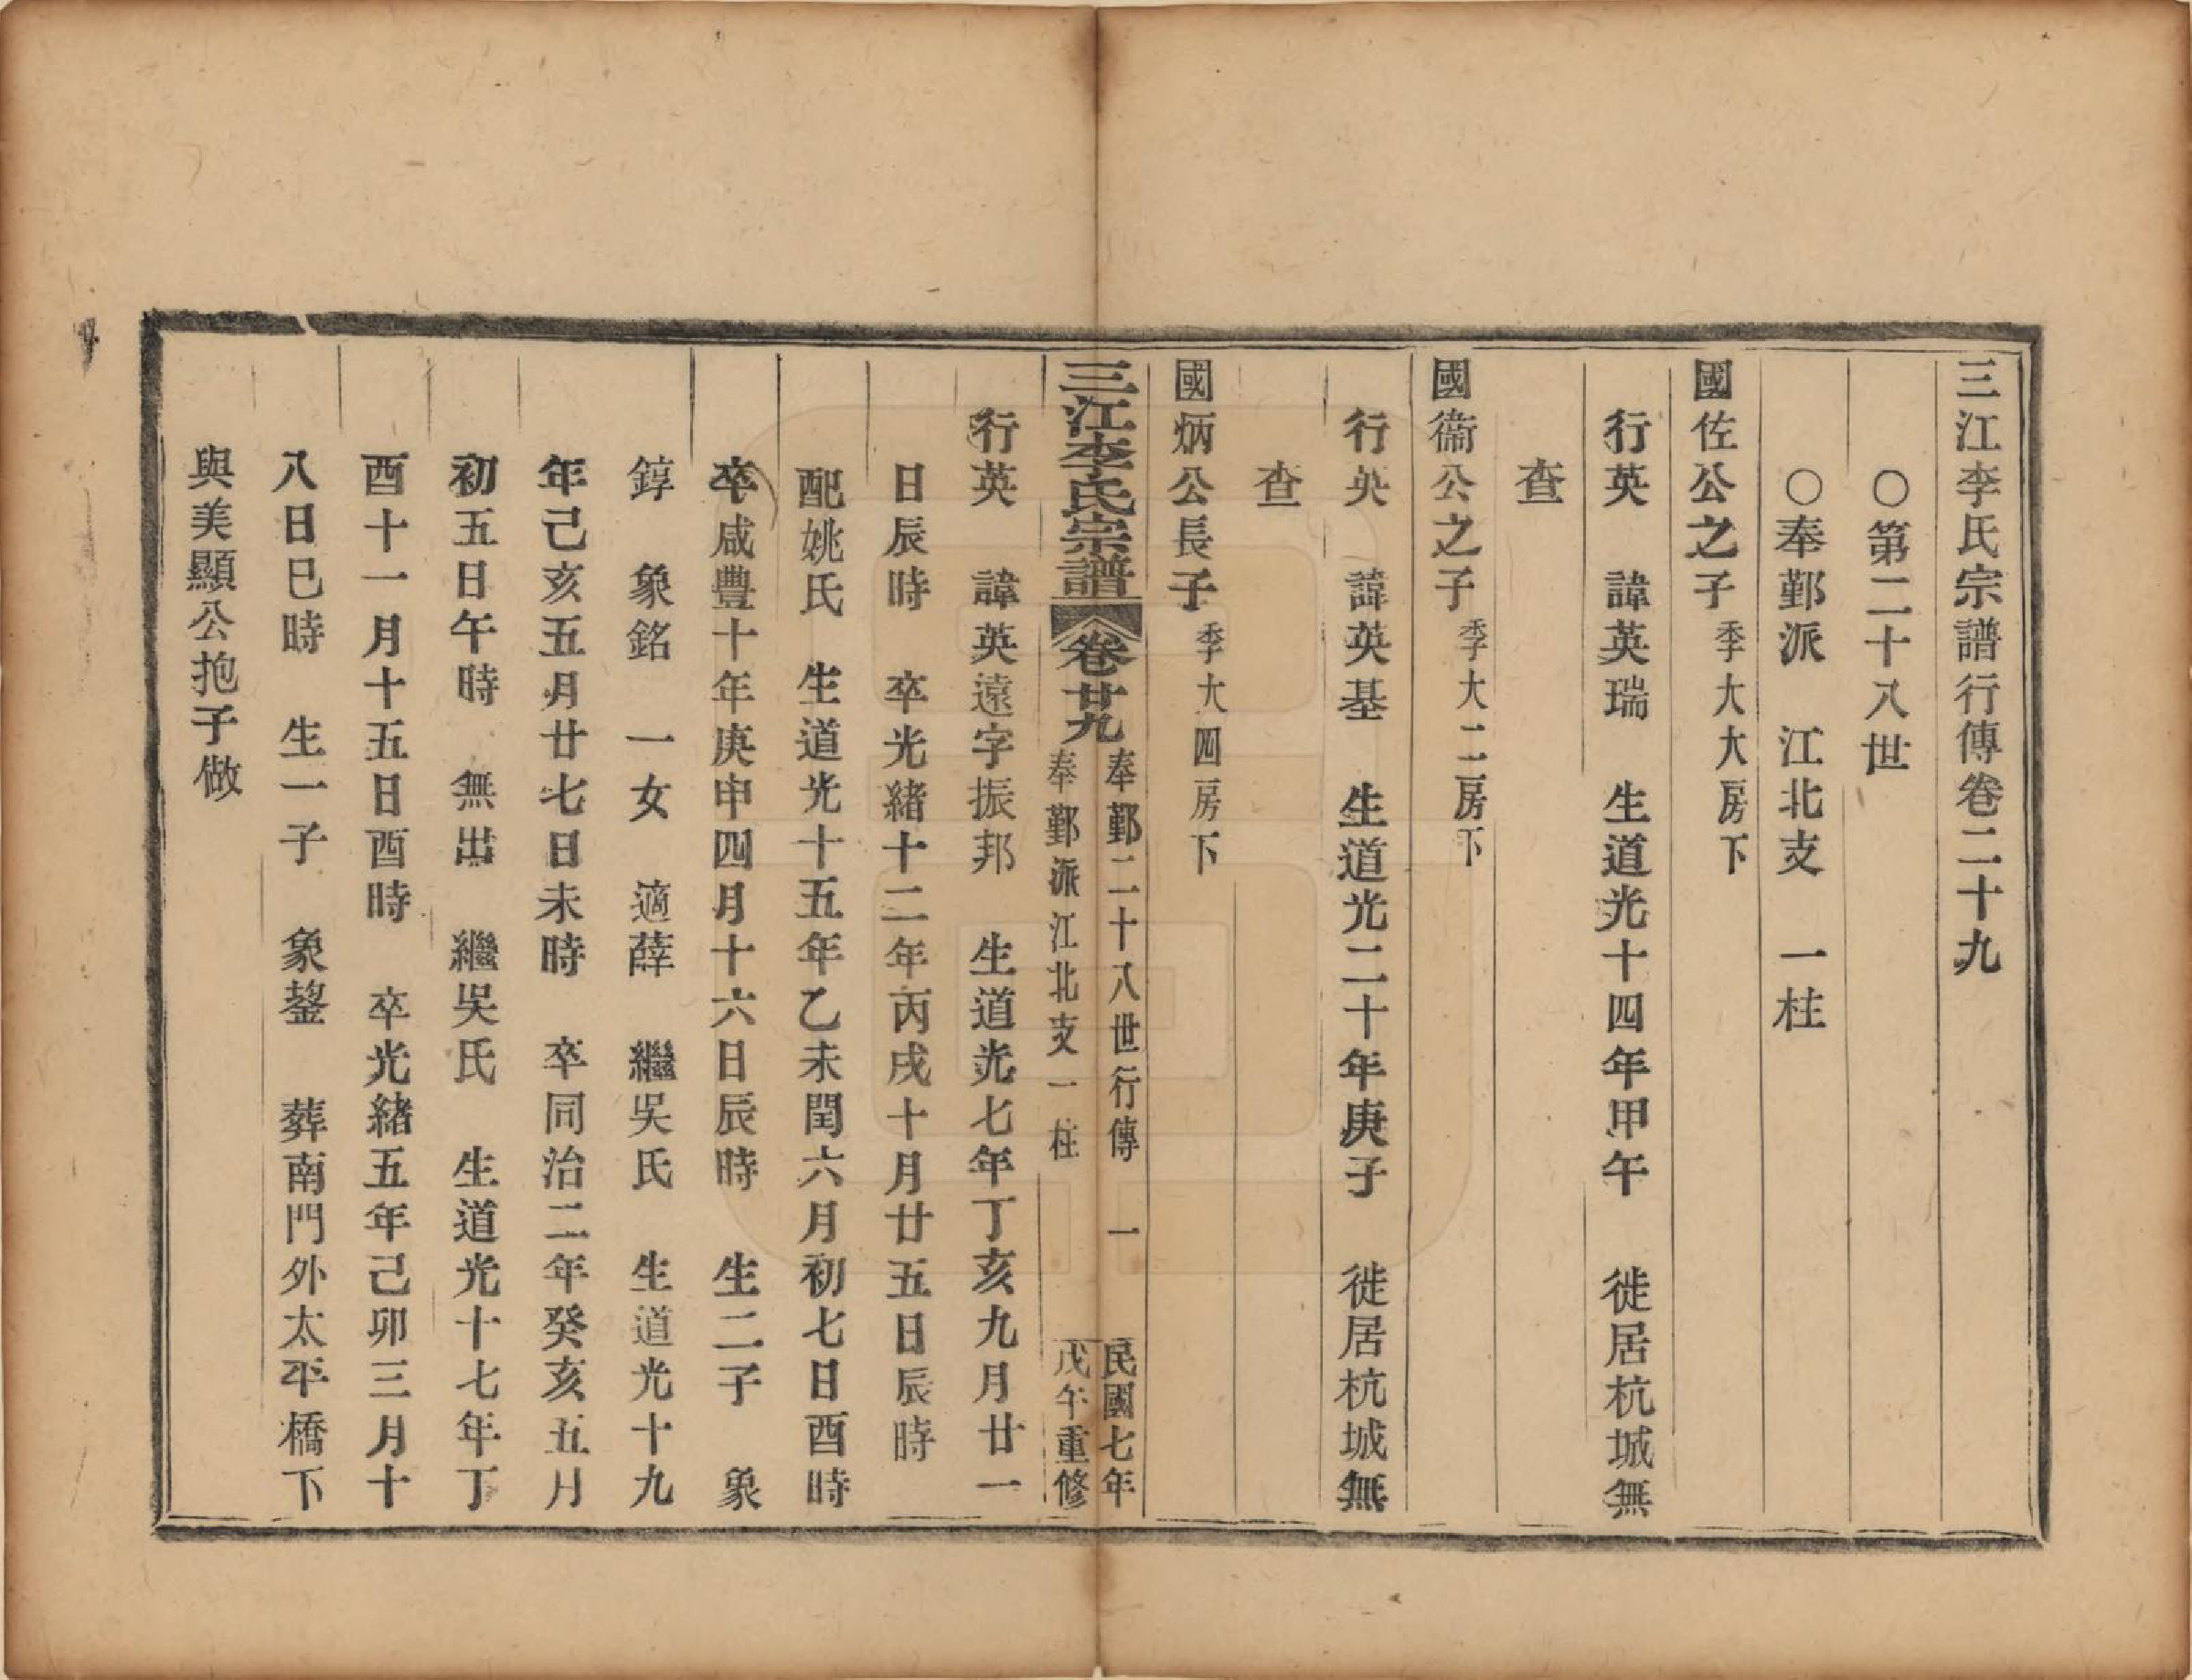 三江李氏宗譜行傳卷二十九
〇第二十八世
〇奉鄞派 江北支 一柱
國佐公之子 季大大房下
行英 諱英瑞 生道光十四年甲午 徙居杭城無
查
國衞公之子 季大二房下
行英 諱英基 生道光二十年庚子 徙居杭城無
查
國炳公長子 季大四房下
三江李氏宗譜 卷廿九 奉鄞二十八世行傳 一 民國七年
奉鄞派江北支一柱 戊午重修
行英 諱英遠字振邦 生道光七年丁亥九月廿一
日辰時 卒光緒十二年丙戌十月廿五日辰時
配姚氏 生道光十五年乙未閏六月初七日酉時
卒咸豐十年庚申四月十六日辰時 生二子 象
錞 象銘 一女 適薛 繼吳氏 生道光十九
年己亥五月廿七日未時 卒同治二年癸亥五月
初五日午時 無出 繼吳氏 生道光十七年丁
酉十一月十五日酉時 卒光緒五年己卯三月十
八日巳時 生一子 象鋆 葬南門外太平橋下
與美顯公抱子做